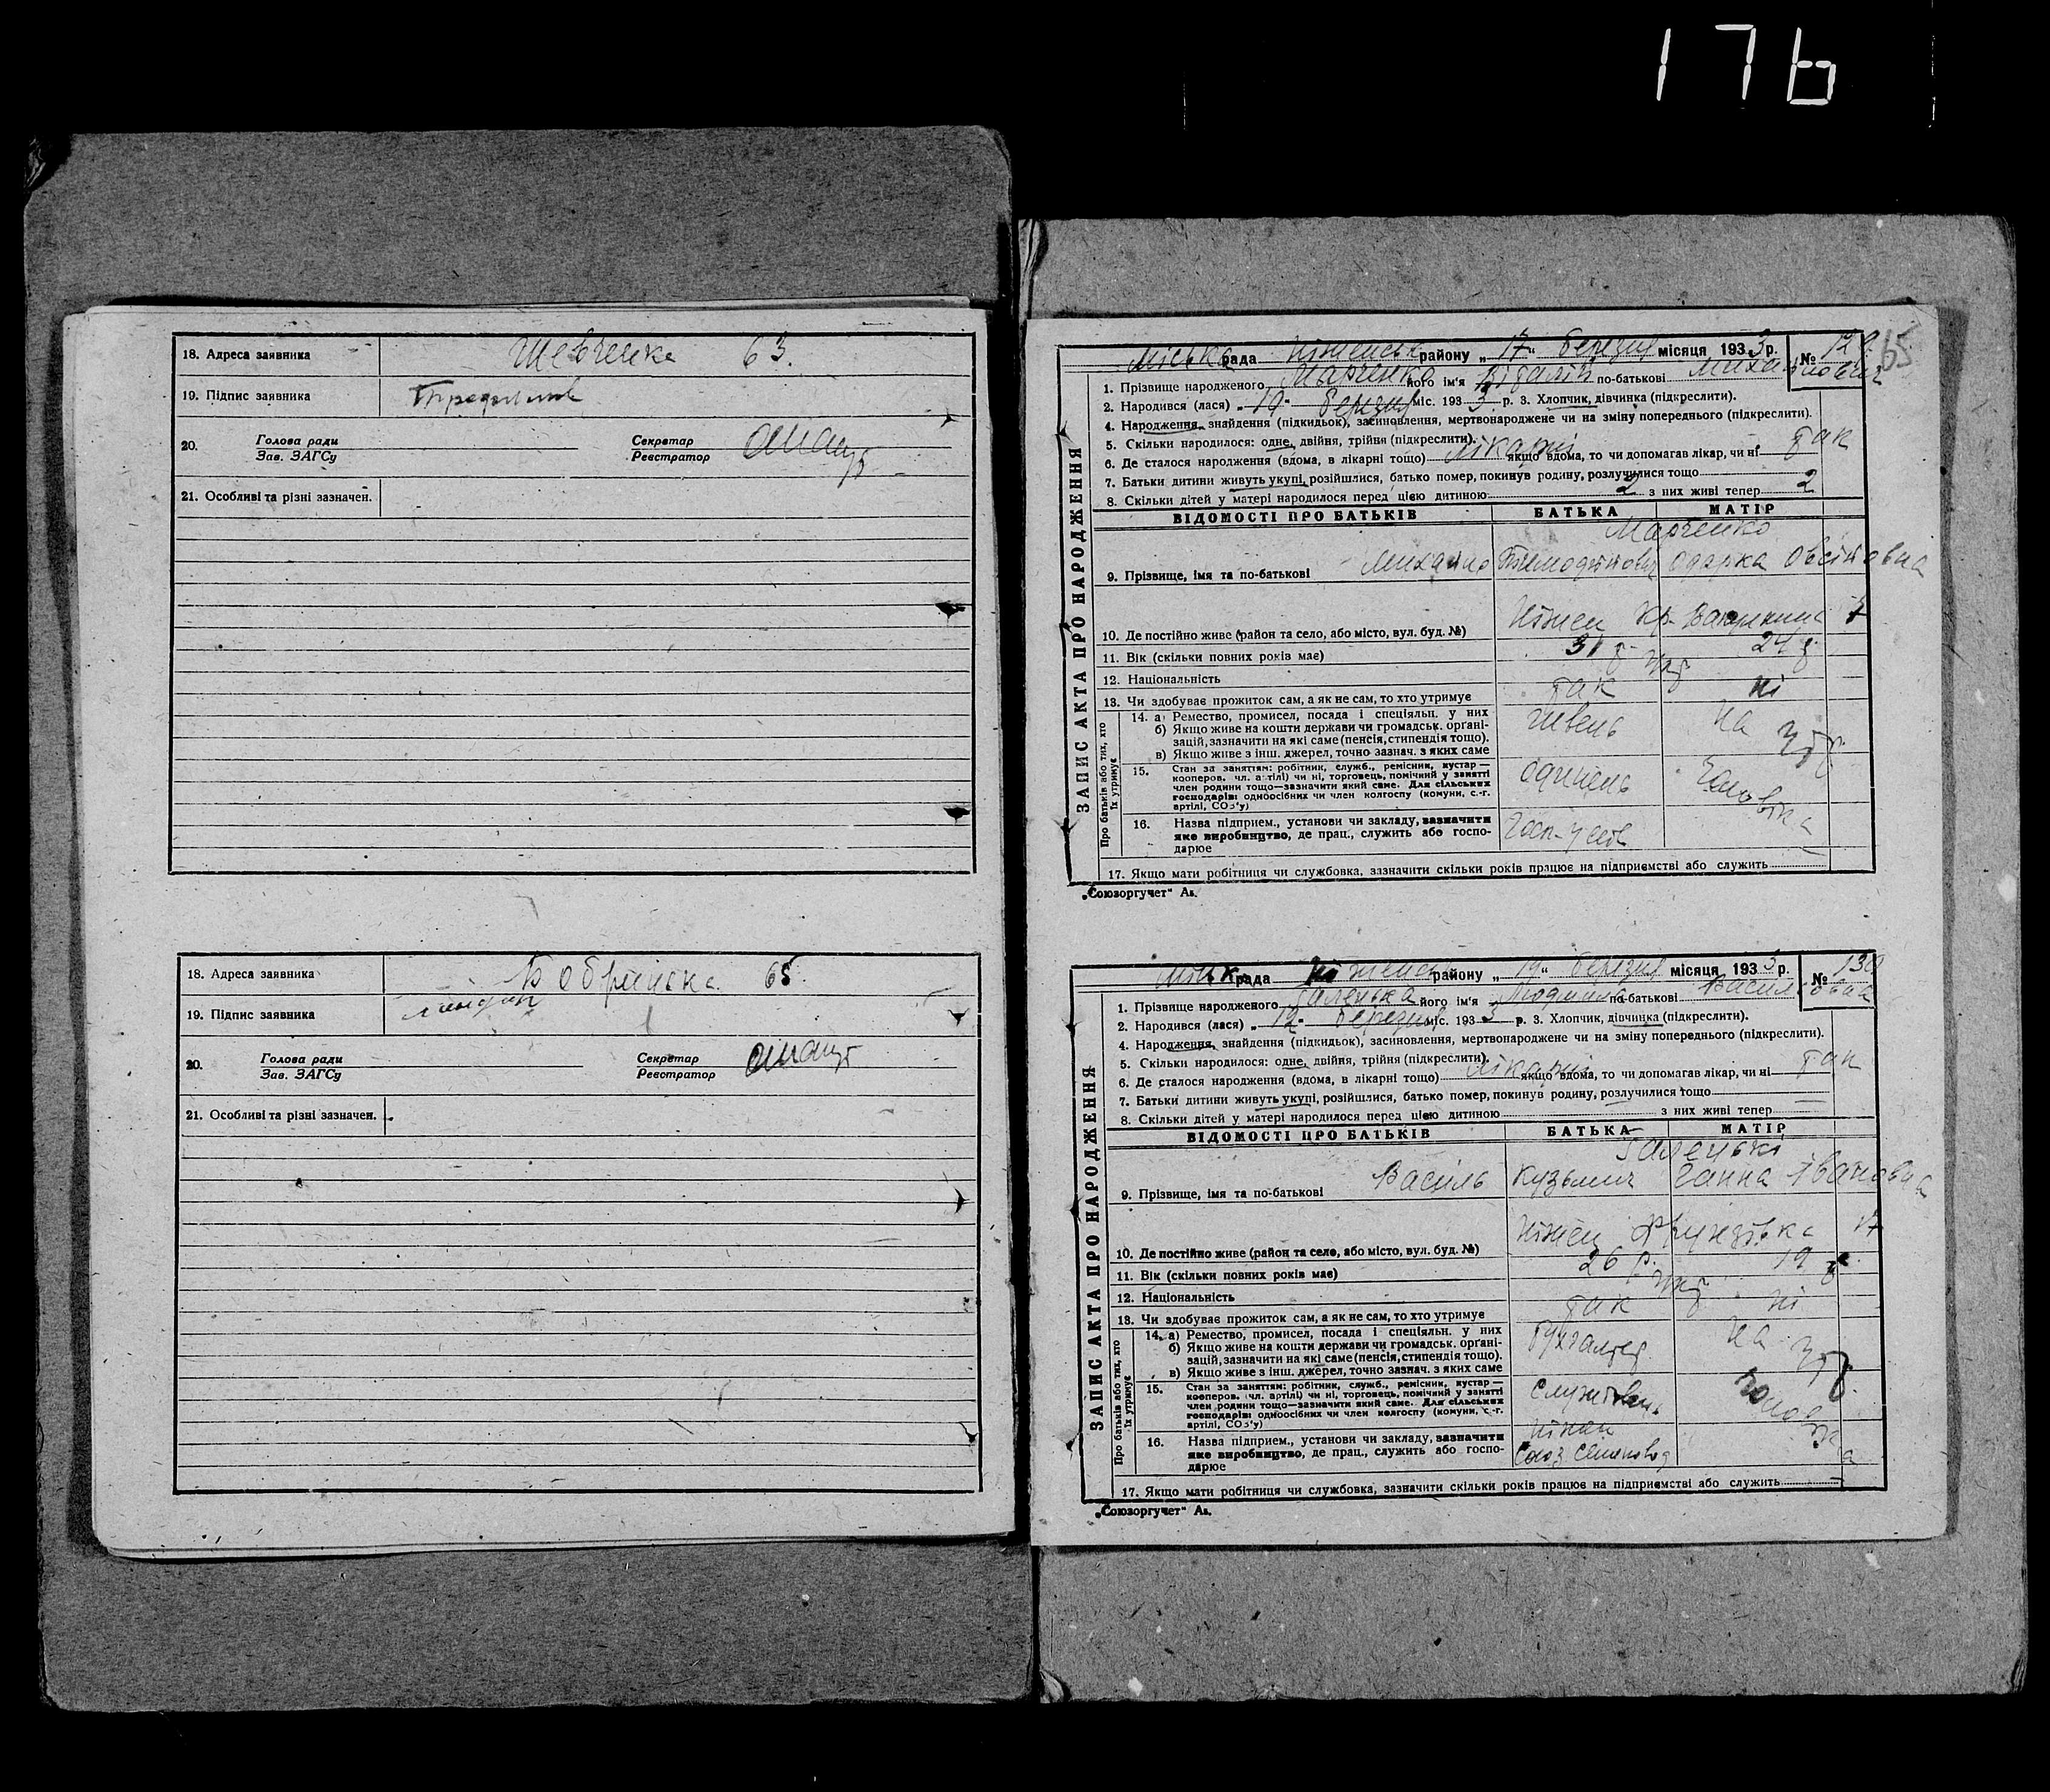 176
18. Адреса заявника Шевченка 63.
19. Підпис заявника
20. Голова ради Зав. ЗАГСу Секретар Реєстратор
21. Особливі та різні зазначен.
18. Адреса заявника Бобрицька 65
19. Підпис заявника
20. Голова ради Зав. ЗАГСу Секретар Реєстратор
21. Особливі та різні зазначен.
65
ЗАПИС АКТА ПРО НАРОДЖЕННЯ
Міська рада Ніженськ району „17“ березня місяця 1933 р. № 129
1. Прізвище народженого Марченко його ім'я Віталій по-батькові Михайлович
2. Народився (лася) „19“ березня міс. 1933 р. 3. Хлопчик, дівчинка (підкреслити).
4. Народження, знайдення (підкидьок), засиновлення, мертвонароджене чи на зміну попереднього (підкреслити).
5. Скільки народилося: одне, двійня, трійня (підкреслити).
6. Де сталося народження (вдома, в лікарні тощо) лікарні якщо вдома, то чи допомагав лікар, чи ні так
7. Батьки дитини живуть укупі, розійшлися, батько помер, покинув родину, розлучилися тощо
8. Скільки дітей у матері народилося перед цією дитиною 2 з них живі тепер 2
ВІДОМОСТІ ПРО БАТЬКІВ БАТЬКА МАТІР
Марченко
9. Прізвище, імя та по-батькові Михайло Одарка
10. Де постійно живе (район та село, або місто, вул. буд. №) Ніжен
11. Вік (скільки повних років має) 31 р. 24 р.
12. Національність Укр
13. Чи здобуває прожиток сам, а як не сам, то хто утримує так ні
Про батьків або тих, хто їх утримує
14. а) Ремество, промисел, посада і спеціяльн. у них
б) Якщо живе на кошти держави чи громадськ. орґані-
зацій, зазначити на які саме (пенсія, стипендія тощо).
в) Якщо живе з інш. джерел, точно зазнач. з яких саме
швець на утр.
15. Стан за заняттям: робітник, служб., ремісник, кустар—
кооперов. чл. артілі) чи ні, торговець, помічний у занятті
член родини тощо—зазначити який саме. Для сільських
господарів: одноосібних чи член колгоспу (комуни, с.-г.
артілі, СОЗ'у)
чоловіка
16. Назва підприєм., установи чи закладу, зазначити
яке виробництво, де прац., служить або госпо-
дарює
17. Якщо мати робітниця чи службовка, зазначити скільки років працює на підприємстві або служить
„Союзоргучет“ Ав.
ЗАПИС АКТА ПРО НАРОДЖЕННЯ
Міська рада Ніженськ району „19“ березня місяця 1933 р. № 130
1. Прізвище народженого Галенька його ім'я Людмила по-батькові Василівна
2. Народився (лася) „12“ березня міс. 1933 р. 3. Хлопчик, дівчинка (підкреслити).
4. Народження, знайдення (підкидьок), засиновлення, мертвонароджене чи на зміну попереднього (підкреслити).
5. Скільки народилося: одне, двійня, трійня (підкреслити).
6. Де сталося народження (вдома, в лікарні тощо) лікарні якщо вдома, то чи допомагав лікар, чи ні так
7. Батьки дитини живуть укупі, розійшлися, батько помер, покинув родину, розлучилися тощо
8. Скільки дітей у матері народилося перед цією дитиною з них живі тепер
ВІДОМОСТІ ПРО БАТЬКІВ БАТЬКА МАТІР
Галенькі
9. Прізвище, імя та по-батькові Василь Кузьмич Ганна Івановна
10. Де постійно живе (район та село, або місто, вул. буд. №) Ніжен Фрунзівка 17
11. Вік (скільки повних років має) 26 р. 19 р.
12. Національність Укр
13. Чи здобуває прожиток сам, а як не сам, то хто утримує так ні
Про батьків або тих, хто їх утримує
14. а) Ремество, промисел, посада і спеціяльн. у них
б) Якщо живе на кошти держави чи громадськ. орґані-
зацій, зазначити на які саме (пенсія, стипендія тощо).
в) Якщо живе з інш. джерел, точно зазнач. з яких саме
бухгалтер на утр.
15. Стан за заняттям: робітник, служб., ремісник, кустар—
кооперов. чл. артілі) чи ні, торговець, помічний у занятті
член родини тощо—зазначити який саме. Для сільських
господарів: одноосібних чи член колгоспу (комуни, с.-г.
артілі, СОЗ'у)
чоловіка
16. Назва підприєм., установи чи закладу, зазначити
яке виробництво, де прац., служить або госпо-
дарює
17. Якщо мати робітниця чи службовка, зазначити скільки років працює на підприємстві або служить
„Союзоргучет“ Ав.